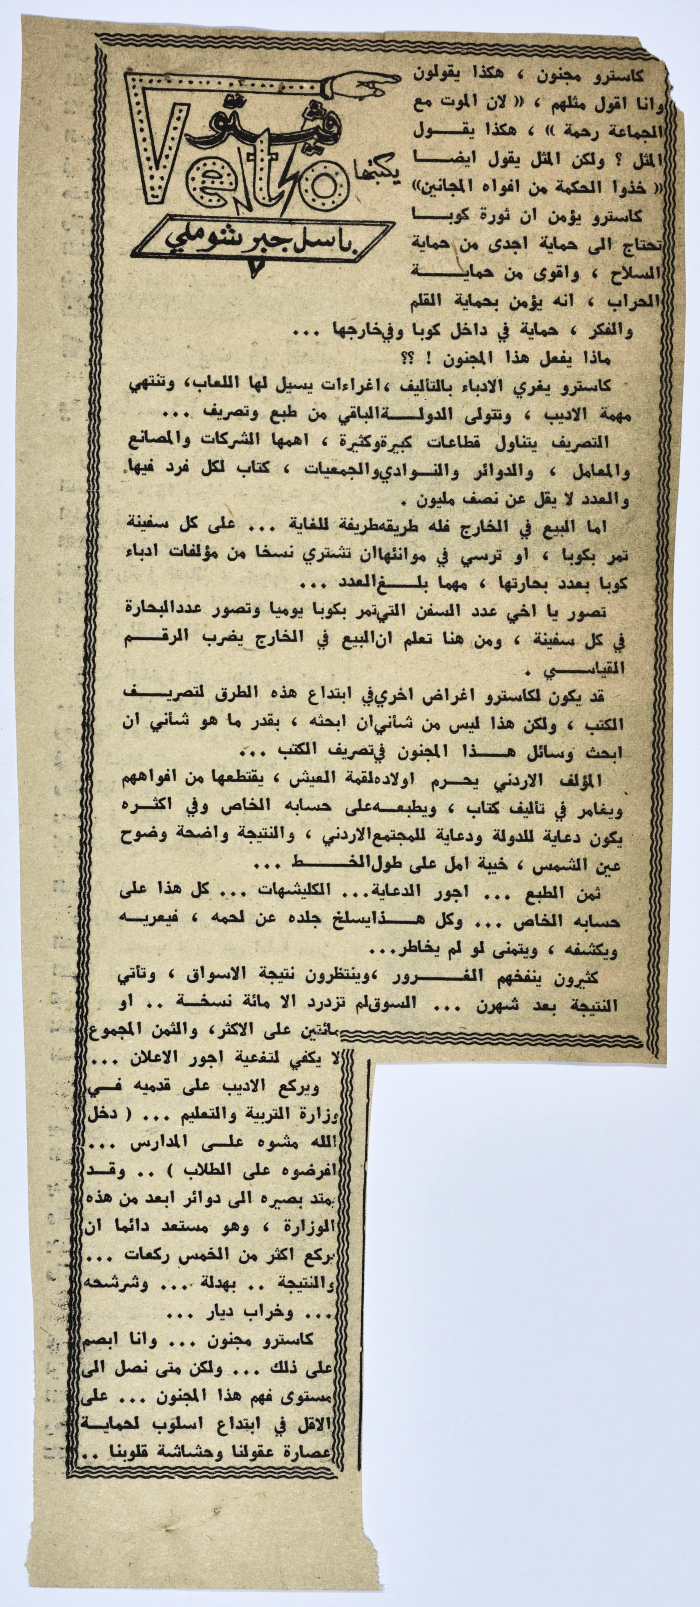 فيتو
Veto
يكتبها
باسل جبر شوملي
كاسترو مجنون ، هكذا يقولون
وانا اقول مثلهم ، « لان الموت مع
الجماعة رحمة » ، هكذا يقول
المثل ؟ ولكن المثل يقول ايضا
« خذوا الحكمة من افواه المجانين»
كاسترو يؤمن ان ثورة كوبا
تحتاج الى حماية اجدى من حماية
السلاح ، واقوى من حماية
الحراب ، انه يؤمن بحماية القلم
والفكر ، حماية في داخل كوبا وفي خارجها ...
ماذا يفعل هذا المجنون ! ؟؟
كاسترو يغري الادباء بالتأليف ، اغراءات يسيل لها اللعاب، وتنتهي
مهمة الاديب ، وتتولى الدولة الباقي من طبع وتصريف ...
التصريف يتناول قطاعات كبيرة وكثيرة ، اهمها الشركات والمصانع
والمعامل ، والدوائر والنوادي والجمعيات ، كتاب لكل فرد فيها
والعدد لا يقل عن نصف مليون .
اما البيع في الخارج فله طريقه طريفة للغاية ... على كل سفينة
تمر بكوبا ، او ترسي في موانئها ان تشتري نسخا من مؤلفات ادباء
كوبا بعدد بحارتها ، مهما بلغ العدد ...
تصور يا اخي عدد السفن التي تمر بكوبا يوميا وتصور عدد البحارة
في كل سفينة ، ومن هنا تعلم ان البيع في الخارج يضرب الرقم
القياسي .
قد يكون لكاسترو اغراض اخرى في ابتداع هذه الطرق لتصريف
الكتب ، ولكن هذا ليس من شأني ان ابحثه ، بقدر ما هو شأني ان
ابحث وسائل هذا المجنون في تصريف الكتب ...
المؤلف الاردني يحرم اولاده لقمة العيش ، يقتطعها من افواههم
ويغامر في تأليف كتاب ، ويطبعه على حسابه الخاص وفي اكثره
يكون دعاية للدولة ودعاية للمجتمع الاردني ، والنتيجة واضحة وضوح
عين الشمس ، خيبة امل على طول الخط ...
ثمن الطبع ... اجور الدعاية... الكليشهات ... كل هذا على
حسابه الخاص ... وكل هذا يسلخ جلده عن لحمه ، فيعريه
ويكشفه ، ويتمنى لو لم يخاطر...
كثيرون ينفخهم الغرور ، وينتظرون نتيجة الاسواق ، وتأتي
النتيجة بعد شهرن ... السوق لم تزدرد الا مائة نسخة .. او
مائتين على الاكثر، والثمن المجموع
لا يكفي لتغعية اجور الاعلان ...
ويركع الاديب على قدميه في
وزارة التربية والتعليم ... ( دخل
الله مشوه على المدارس ...
افرضوه على الطلاب ) .. وقد
يمتد بصيره الى دوائر ابعد من هذه
الوزارة ، وهو مستعد دائما ان
يركع اكثر من الخمس ركعات ...
والنتيجة .. بهدلة ... وشرشحه
... وخراب ديار ...
كاسترو مجنون ... وانا ابصم
على ذلك ... ولكن متى نصل الى
مستوى فهم هذا المجنون ... على
الاقل في ابتداع اسلوب لحماية
عصارة عقولنا وحشاشة قلوبنا ..